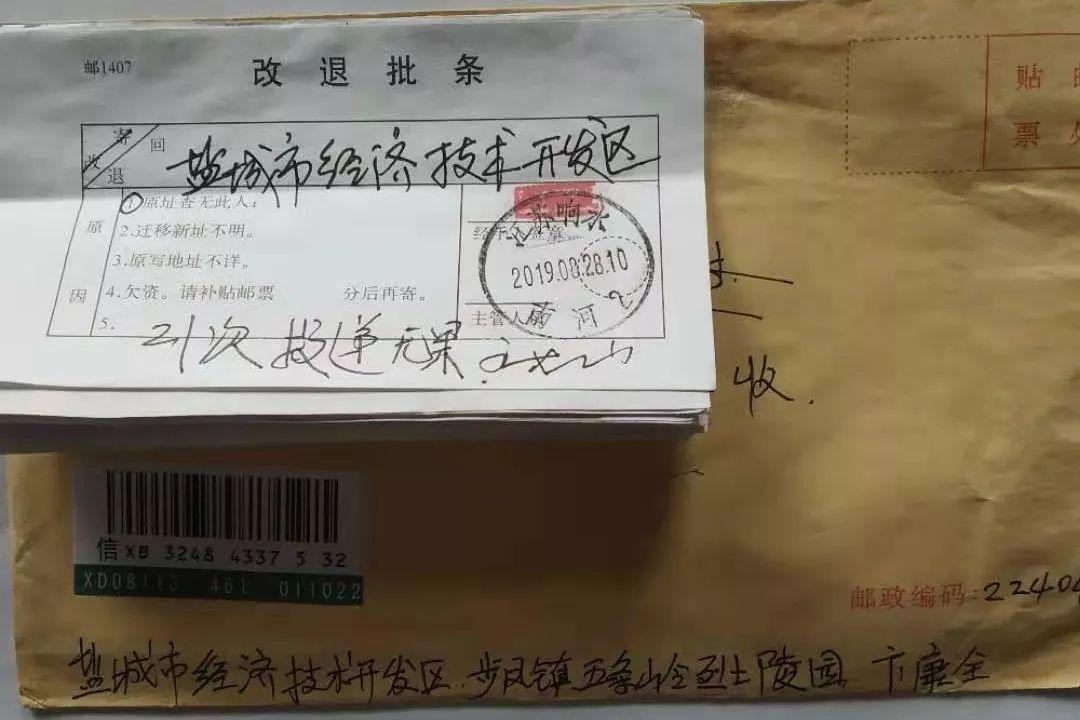 邮1407
改退批条
寄
改
退
回
盐城市经济技术开发区
原
因
1.原址查无此人；
2.迁移新址不明。
3.原写地址不详。
4.欠资。请补贴邮票 分后再寄。
5.
21次投递无果
经手人盖章
主管人
江苏响水
2019.08.28.10
南河
贴
票
收.
信 XB 3248 4337 5 32
XD08113 461 011022
邮政编码:2240
盐城市经济技术开发区.步凤镇五条岭烈士陵园 卞康全